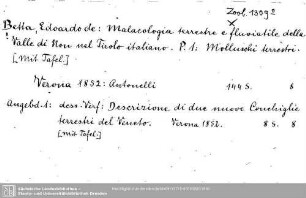 Zool. 1309 z
Betta, Edoardo de: Malacologia terrestre e fluviatile della
! Valle di Non nel Tirolo italiano. P. 1: Molluschi terrestri.
[Mit Tafel.]
Verona 1852: Antonelli 144 S. 8
Angebd. 1: dess. Verf: Descrizione di due nuove Conchiglie
terrestri del Veneto. Verona 1852. 8 S. 8
[mit Taf.]
Sächsische Landesbibliothek -
Staats- und Universitätsbibliothek Dresden